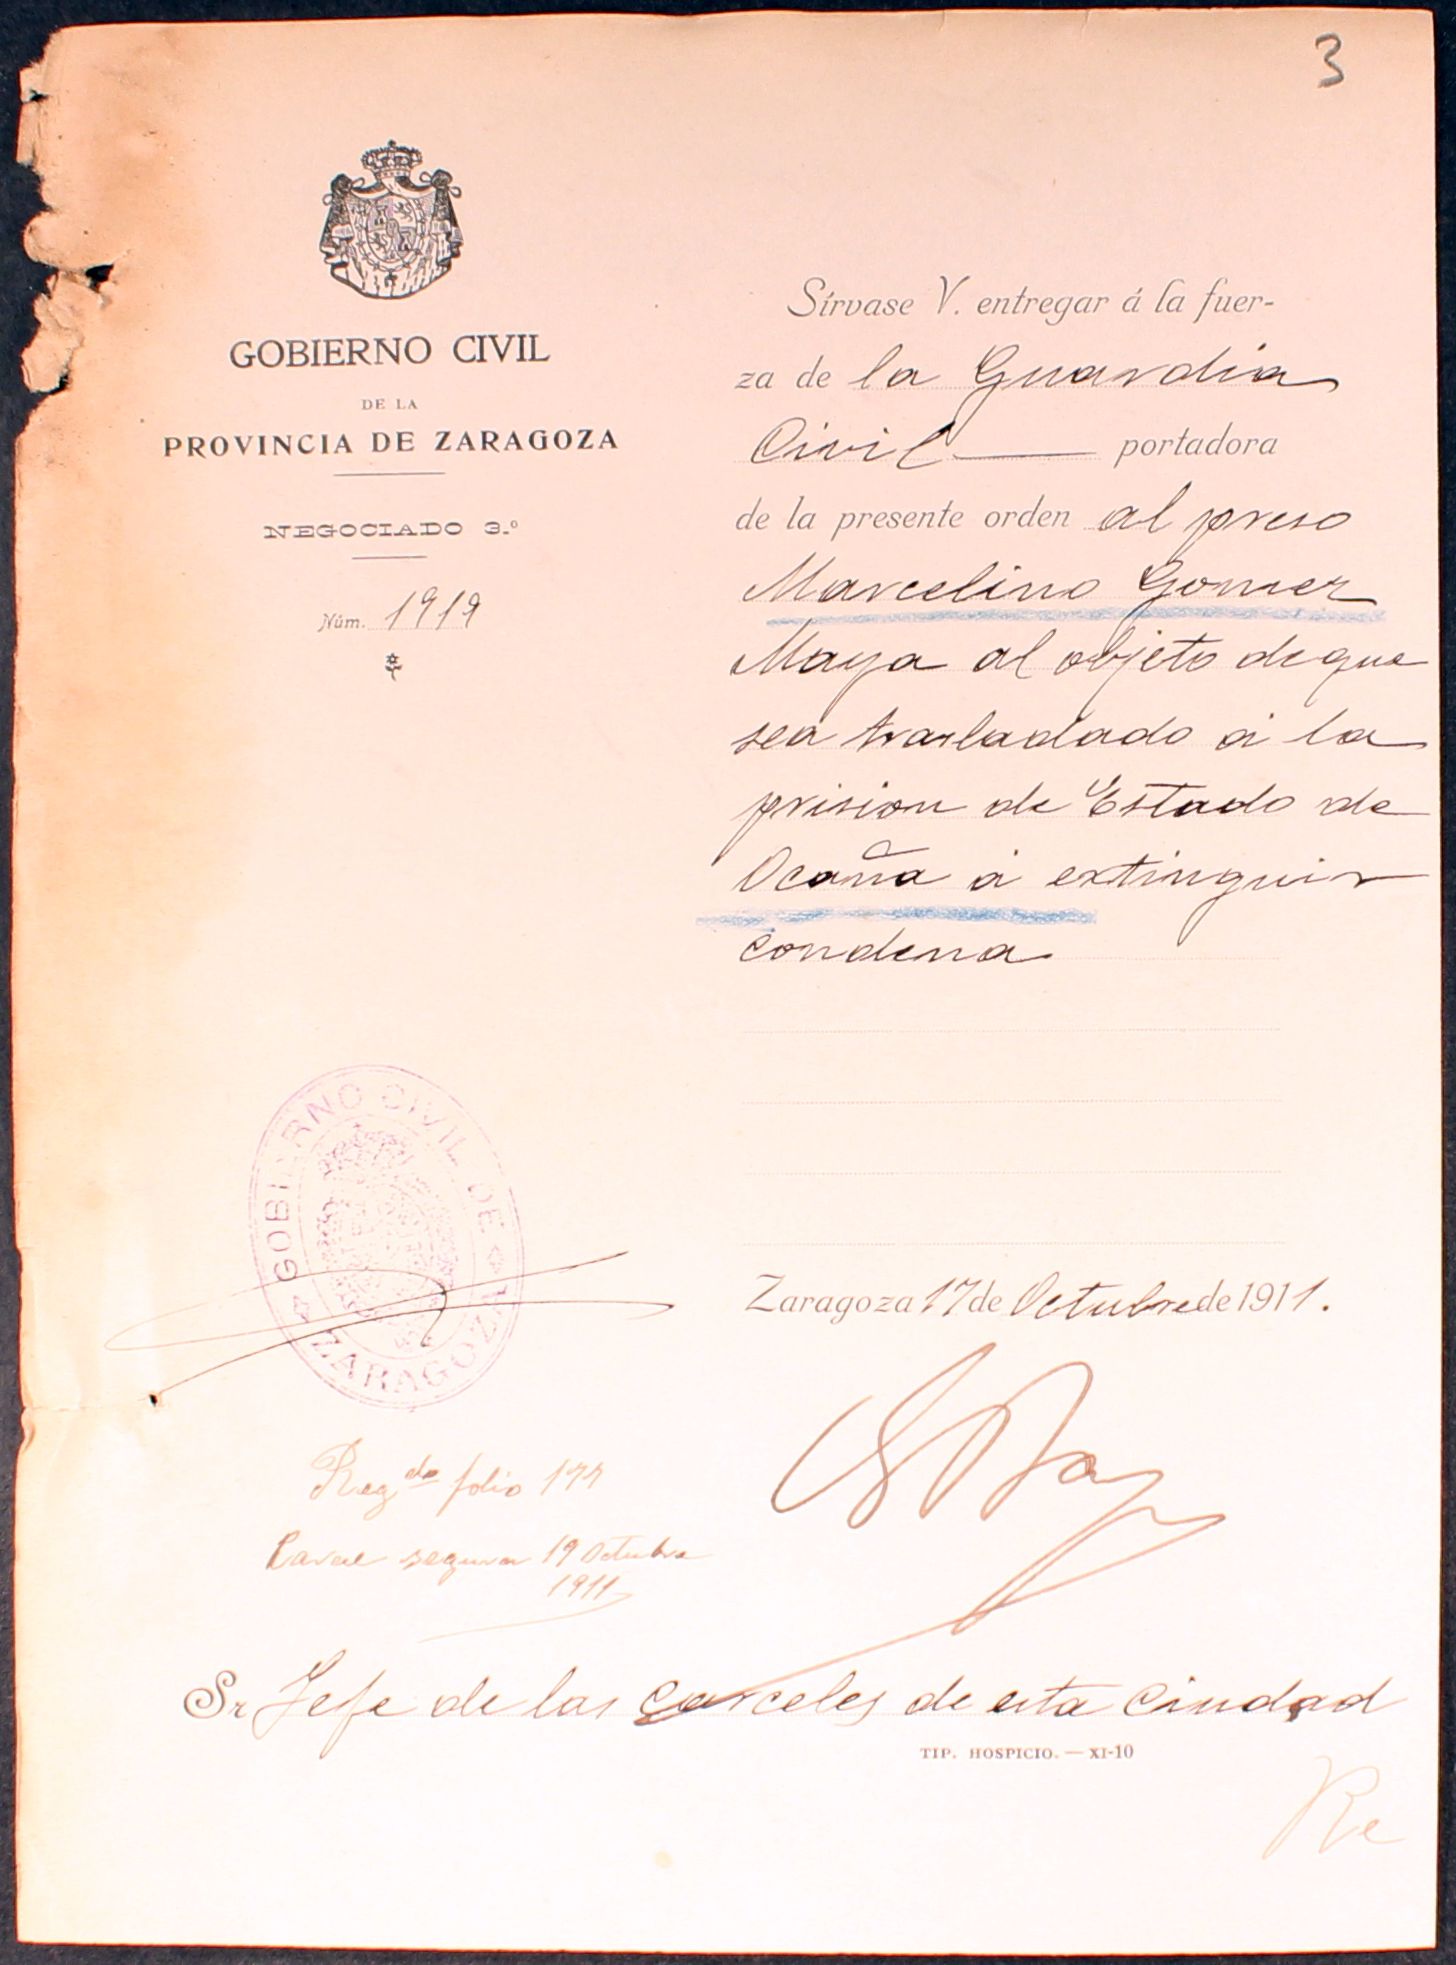 3
GOBIERNO CIVIL
DE LA
PROVINCIA DE ZARAGOZA
NEGOCIADO 3.º
Núm. 1919
Sírvase V. entregar á la fuer-
za de la Guardia
Civil portadora
de la presente orden al preso
Marcelino Gomez
Maya al objeto de que
sea trasladado á la
prision de Estado de
Ocaña á extinguir
condena.
GOBIERNO CIVIL DE ZARAGOZA
Zaragoza 17 de Octubre de 1911.
Regdo folio 177
19 Octubre
1911
Sr Jefe de las carceles de esta Ciudad
TIP. HOSPICIO. — XI-10